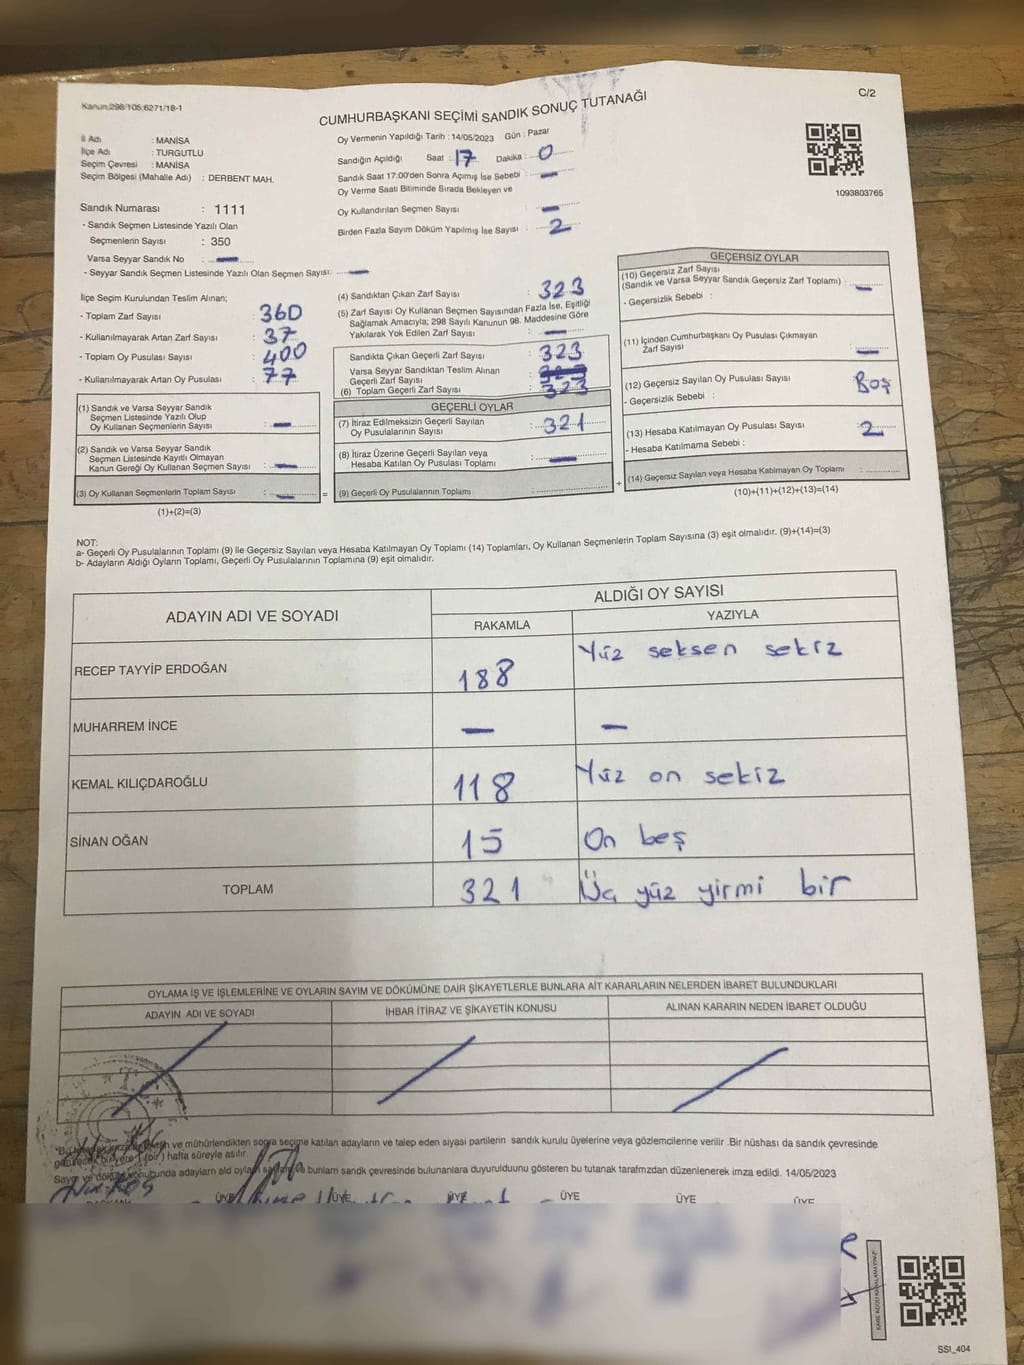 Kanun;298/105;6271/18-1
C/2
CUMHURBAŞKANI SEÇİMİ SANDIK SONUÇ TUTANAĞI
İl Adı : MANİSA
İlçe Adı : TURGUTLU
Seçim Çevresi : MANİSA
Seçim Bölgesi (Mahalle Adı) : DERBENT MAH.
Sandık Numarası : 1111
- Sandık Seçmen Listesinde Yazılı Olan
Seçmenlerin Sayısı : 350
Varsa Seyyar Sandık No : —
- Seyyar Sandık Seçmen Listesinde Yazılı Olan Seçmen Sayısı: —
Oy Vermenin Yapıldığı Tarih : 14/05/2023 Gün : Pazar
Sandığın Açıldığı Saat : 17 Dakika : 0
Sandık Saat 17:00'den Sonra Açımış İse Sebebi : —
Oy Verme Saati Bitiminde Sırada Bekleyen ve
Oy Kullandırılan Seçmen Sayısı —
Birden Fazla Sayım Döküm Yapılmış İse Sayısı : 2
1093803765
İlçe Seçim Kurulundan Teslim Alınan;
- Toplam Zarf Sayısı : 360
- Kullanılmayarak Artan Zarf Sayısı : 37
- Toplam Oy Pusulası Sayısı : 400
- Kullanılmayarak Artan Oy Pusulası : 77
(1) Sandık ve Varsa Seyyar Sandık
Seçmen Listesinde Yazılı Olup
Oy Kullanan Seçmenlerin Sayısı : —
(2) Sandık ve Varsa Seyyar Sandık
Seçmen Listesinde Kayıtlı Olmayan
Kanun Gereği Oy Kullanan Seçmen Sayısı : —
(3) Oy Kullanan Seçmenlerin Toplam Sayısı : — =
(1)+(2)=(3)
(4) Sandıktan Çıkan Zarf Sayısı : 323
(5) Zarf Sayısı Oy Kullanan Seçmen Sayısından Fazla İse, Eşitliği
Sağlamak Amacıyla; 298 Sayılı Kanunun 98. Maddesine Göre
Yakılarak Yok Edilen Zarf Sayısı : —
Sandıkta Çıkan Geçerli Zarf Sayısı : 323
Varsa Seyyar Sandıktan Teslim Alınan
Geçerli Zarf Sayısı :
(6) Toplam Geçerli Zarf Sayısı : 323
GEÇERLİ OYLAR
(7) İtiraz Edilmeksizin Geçerli Sayılan
Oy Pusulalarının Sayısı : 321
(8) İtiraz Üzerine Geçerli Sayılan veya
Hesaba Katılan Oy Pusulası Toplamı : —
(9) Geçerli Oy Pusulalarının Toplamı : +
GEÇERSİZ OYLAR
(10) Geçersiz Zarf Sayısı
(Sandık ve Varsa Seyyar Sandık Geçersiz Zarf Toplamı) : —
- Geçersizlik Sebebi :
(11) İçinden Cumhurbaşkanı Oy Pusulası Çıkmayan
Zarf Sayısı : —
(12) Geçersiz Sayılan Oy Pusulası Sayısı : Boş
- Geçersizlik Sebebi :
(13) Hesaba Katılmayan Oy Pusulası Sayısı : 2
- Hesaba Katılmama Sebebi :
(14) Geçersiz Sayılan veya Hesaba Katılmayan Oy Toplamı :
(10)+(11)+(12)+(13)=(14)
NOT:
a- Geçerli Oy Pusulalarının Toplamı (9) ile Geçersiz Sayılan veya Hesaba Katılmayan Oy Toplamı (14) Toplamları, Oy Kullanan Seçmenlerin Toplam Sayısına (3) eşit olmalıdır. (9)+(14)=(3)
b- Adayların Aldığı Oyların Toplamı, Geçerli Oy Pusulalarının Toplamına (9) eşit olmalıdır.
ADAYIN ADI VE SOYADI
ALDIĞI OY SAYISI
RAKAMLA YAZIYLA
RECEP TAYYİP ERDOĞAN 188 Yüz seksen sekiz
MUHARREM İNCE — —
KEMAL KILIÇDAROĞLU 118 Yüz on sekiz
SİNAN OĞAN 15 On beş
TOPLAM 321 Üç yüz yirmi bir
OYLAMA İŞ VE İŞLEMLERİNE VE OYLARIN SAYIM VE DÖKÜMÜNE DAİR ŞİKAYETLERLE BUNLARA AİT KARARLARIN NELERDEN İBARET BULUNDUKLARI
ADAYIN ADI VE SOYADI İHBAR İTİRAZ VE ŞİKAYETİN KONUSU ALINAN KARARIN NEDEN İBARET OLDUĞU
ve mühürlendikten sogra seçime katılan adayların ve talep eden siyasi partilerin sandık kurulu üyelerine veya gözlemcilerine verilir .Bir nüshası da sandık çevresinde
hafta süreyle asılır.
bunlarn sandık çevresinde bulunanlara duyurulduunu gösteren bu tutanak tarafmzdan düzenlenerek imza edildi. 14/05/2023
ÜYE ÜYE ÜYE ÜYE ÜYE ÜYE
SSI_404